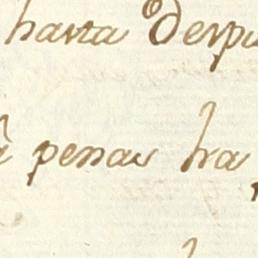 hasta Despu
penas ha